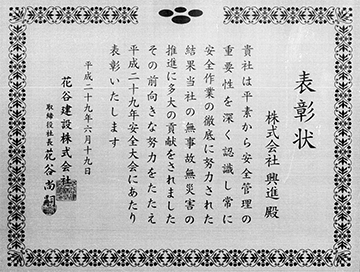 表彰状
株式会社 興進 殿
貴社は平素から安全管理の
重要性を深く認識し常に
安全作業の徹底に努力された
結果当社の無事故無災害の
推進に多大の貢献をされました
その前向きな努力をたたえ
平成二十九年安全大会にあたり
表彰いたします
平成二十九年六月十九日
花谷建設株式会社
取締役社長 花谷尚嗣